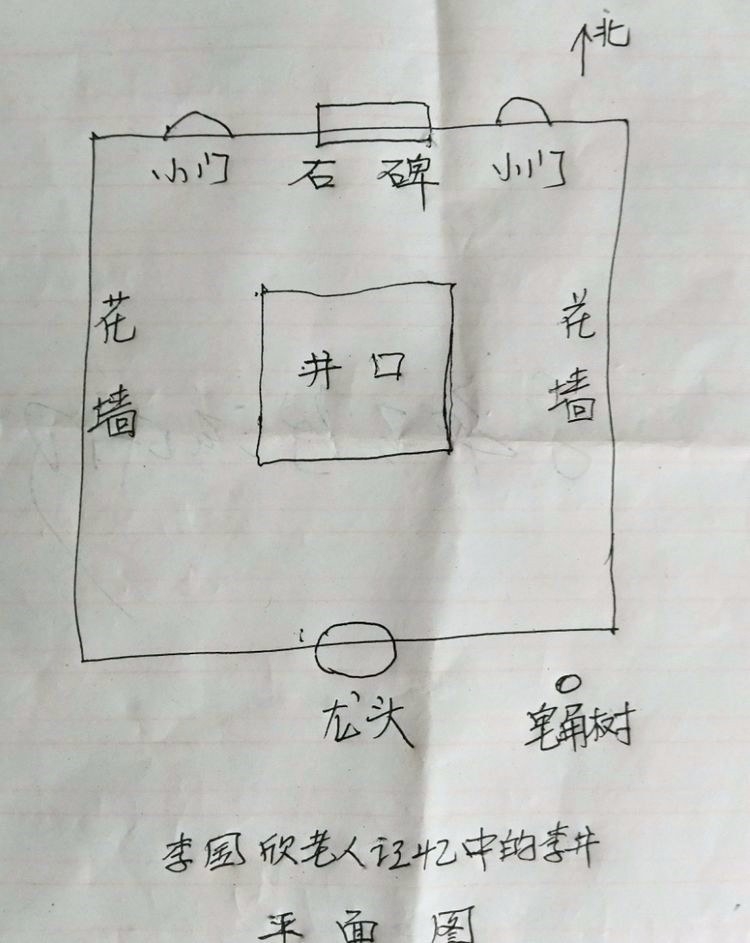 北
小门 石碑 小门
花墙 花墙
井口
龙头
皂角树
李国欣老人记忆中的李井
平面图